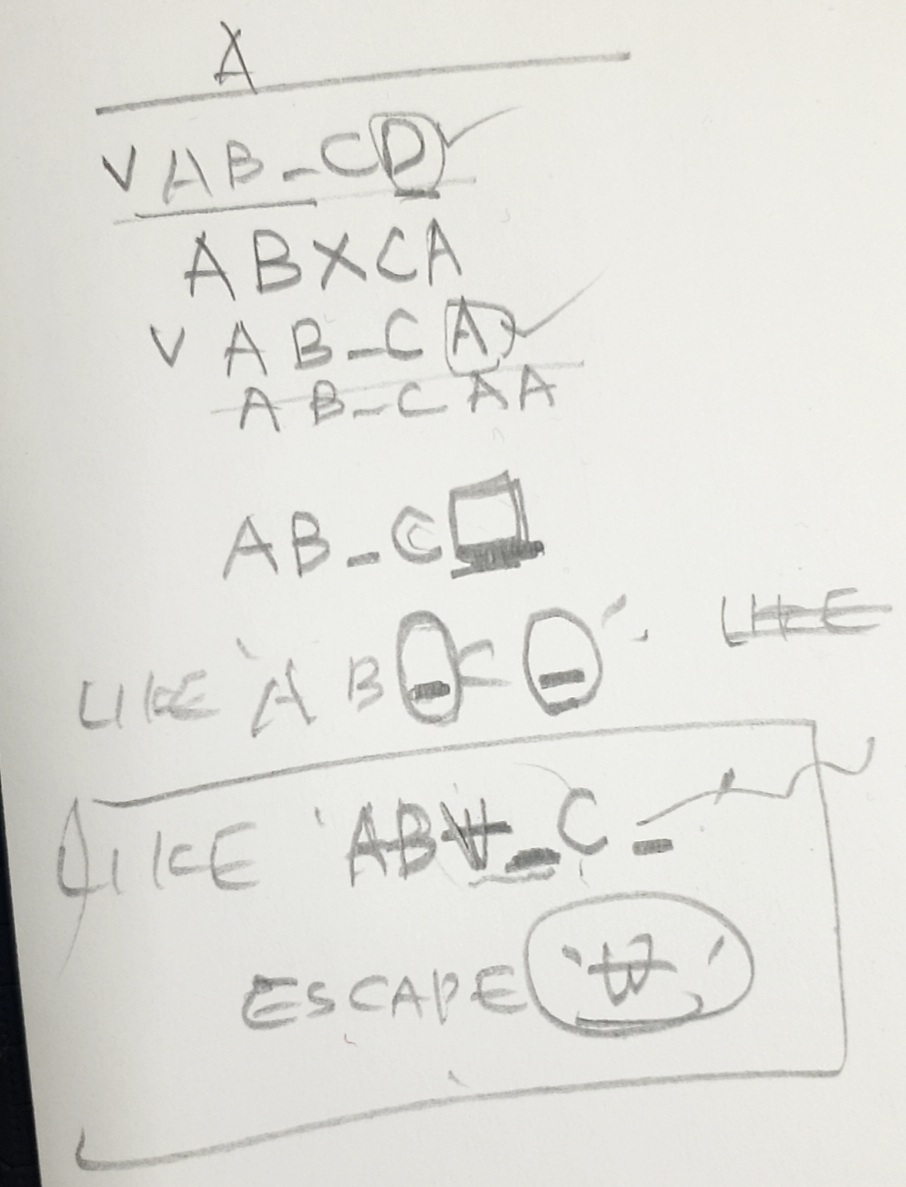 A
V AB_CD
ABXCA
V AB_CA
AB_CAA
AB_C
LIKE 'AB_C_' LIKE
LIKE 'AB₩_C_
ESCAPE '₩'